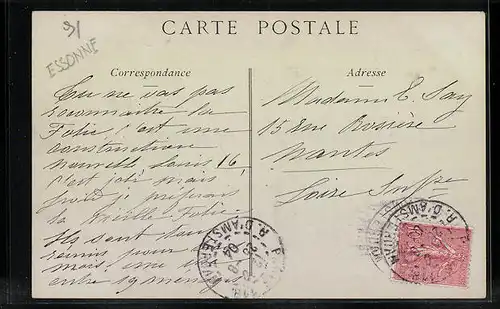 91
ESSONNE
CARTE POSTALE
Correspondance
Adresse
Tu ne vas pas
reconnaitre la
Folie, c'est une
construction
nouvelle Louis 16,
c'est joli mais
froid je préférais
la Vieille Folie.
Ils sont tous
réunis pour
mais, une
entre 19
Madame E. Say
15 Rue Rosière
Nantes
Loire Infre
R. D'AMSTERDAM
R. D'AMSTERDAM